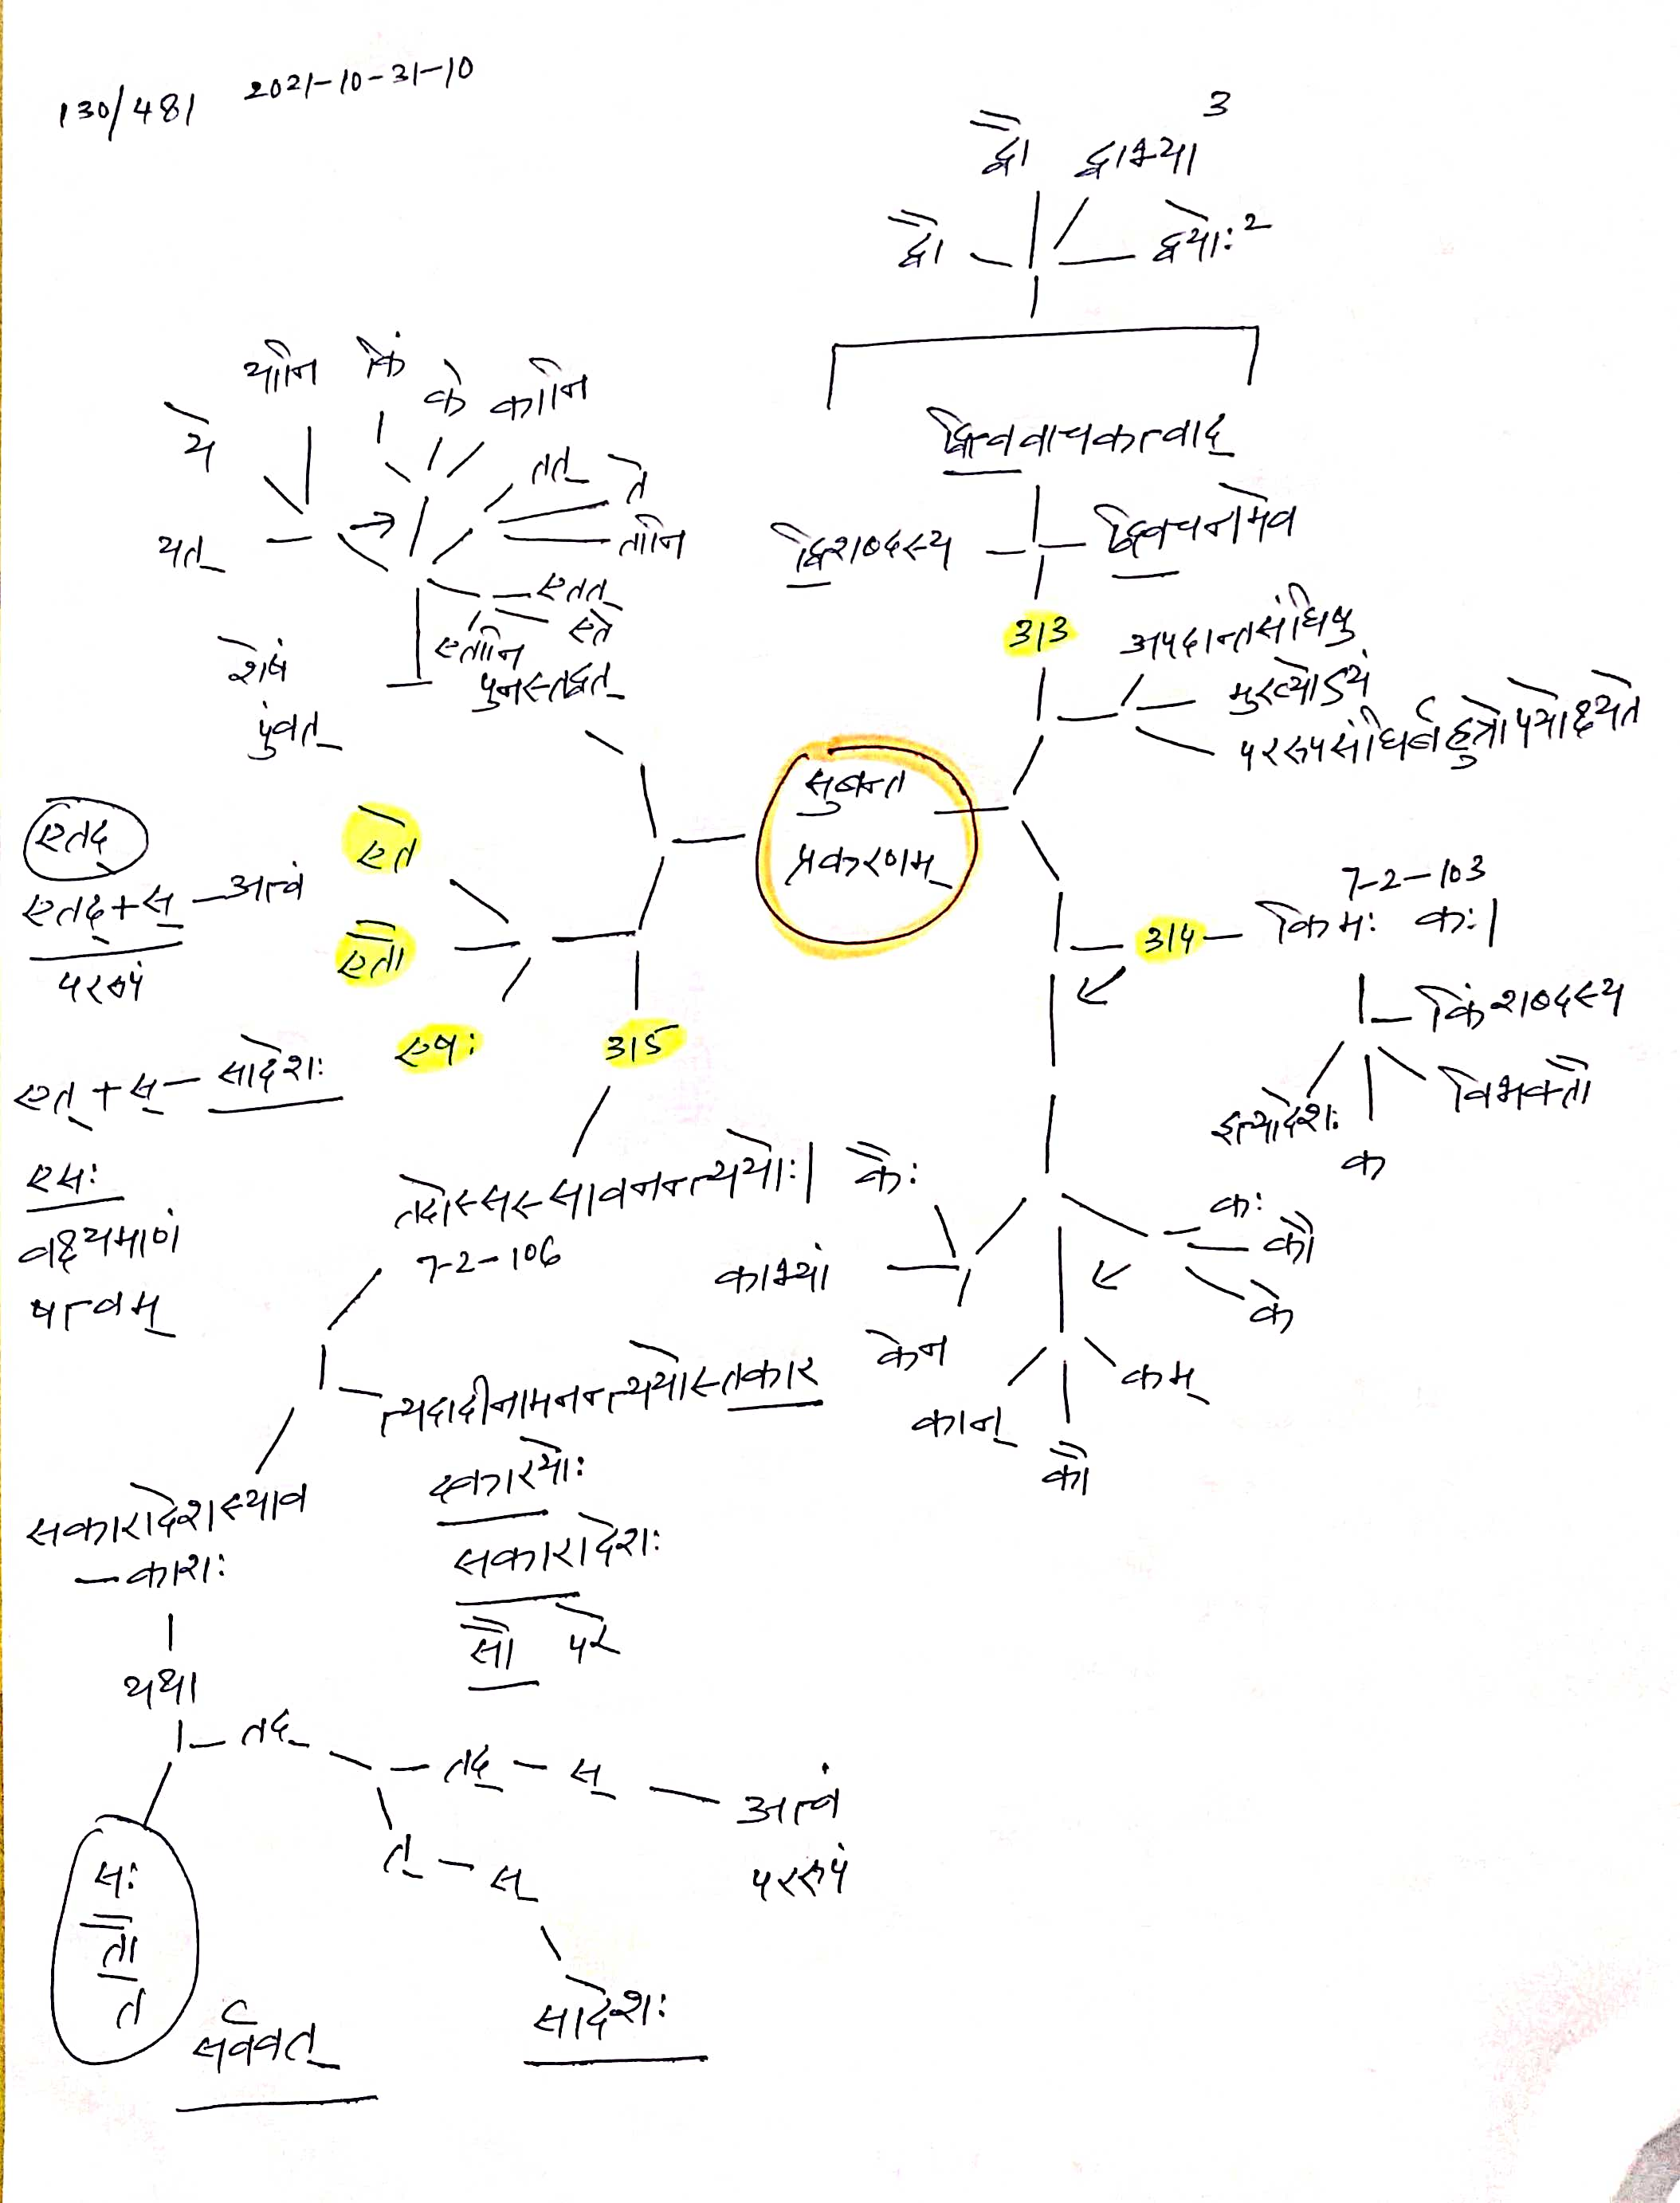 130/481 2021-10-31-10
द्वौ द्वाभ्यां 3
द्वौ द्वयोः 2
द्वित्ववाचकत्वाद्
द्विशब्दस्य द्विवचनमेव
313
अपदान्तसंधिषु
मुख्योऽयं
पररूपसंधिर्बहुत्रोपयोक्ष्यते
यानि किं
ये के कानि
तत् ते
यत् तानि
एतत्
एते
एतानि
शेषं पुनस्तद्वत्
पुंवत्
सुबन्त
प्रकरणम्
एतद्
एतद् + स् — अत्वं
पररूपं
एत् + स् — सादेशः
एसः
वक्ष्यमाणं
षत्वम्
एते
एतौ
एषः
315
7-2-103
314 किमः कः।
किंशब्दस्य
विभक्तौ
इत्यादेशः
क
तदोस्सस्सावनन्त्ययोः।
7-2-106
कैः
काभ्यां
केन
कः
कौ
के
कम्
कौ
कान्
त्यदादीनामनन्त्ययोस्तकार
दकारयोः
सकारादेशः
सौ परे
सकारादेशस्याव
—काशः
यथा
तद्
तद् — स् — अत्वं
पररूपं
त् — स्
सादेशः
सः
तौ
ते
सर्ववत्